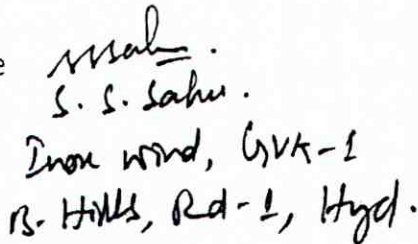 S. S. Sahu.
Inox wind, GVK-1
B-Hills, Rd-1, Hyd.